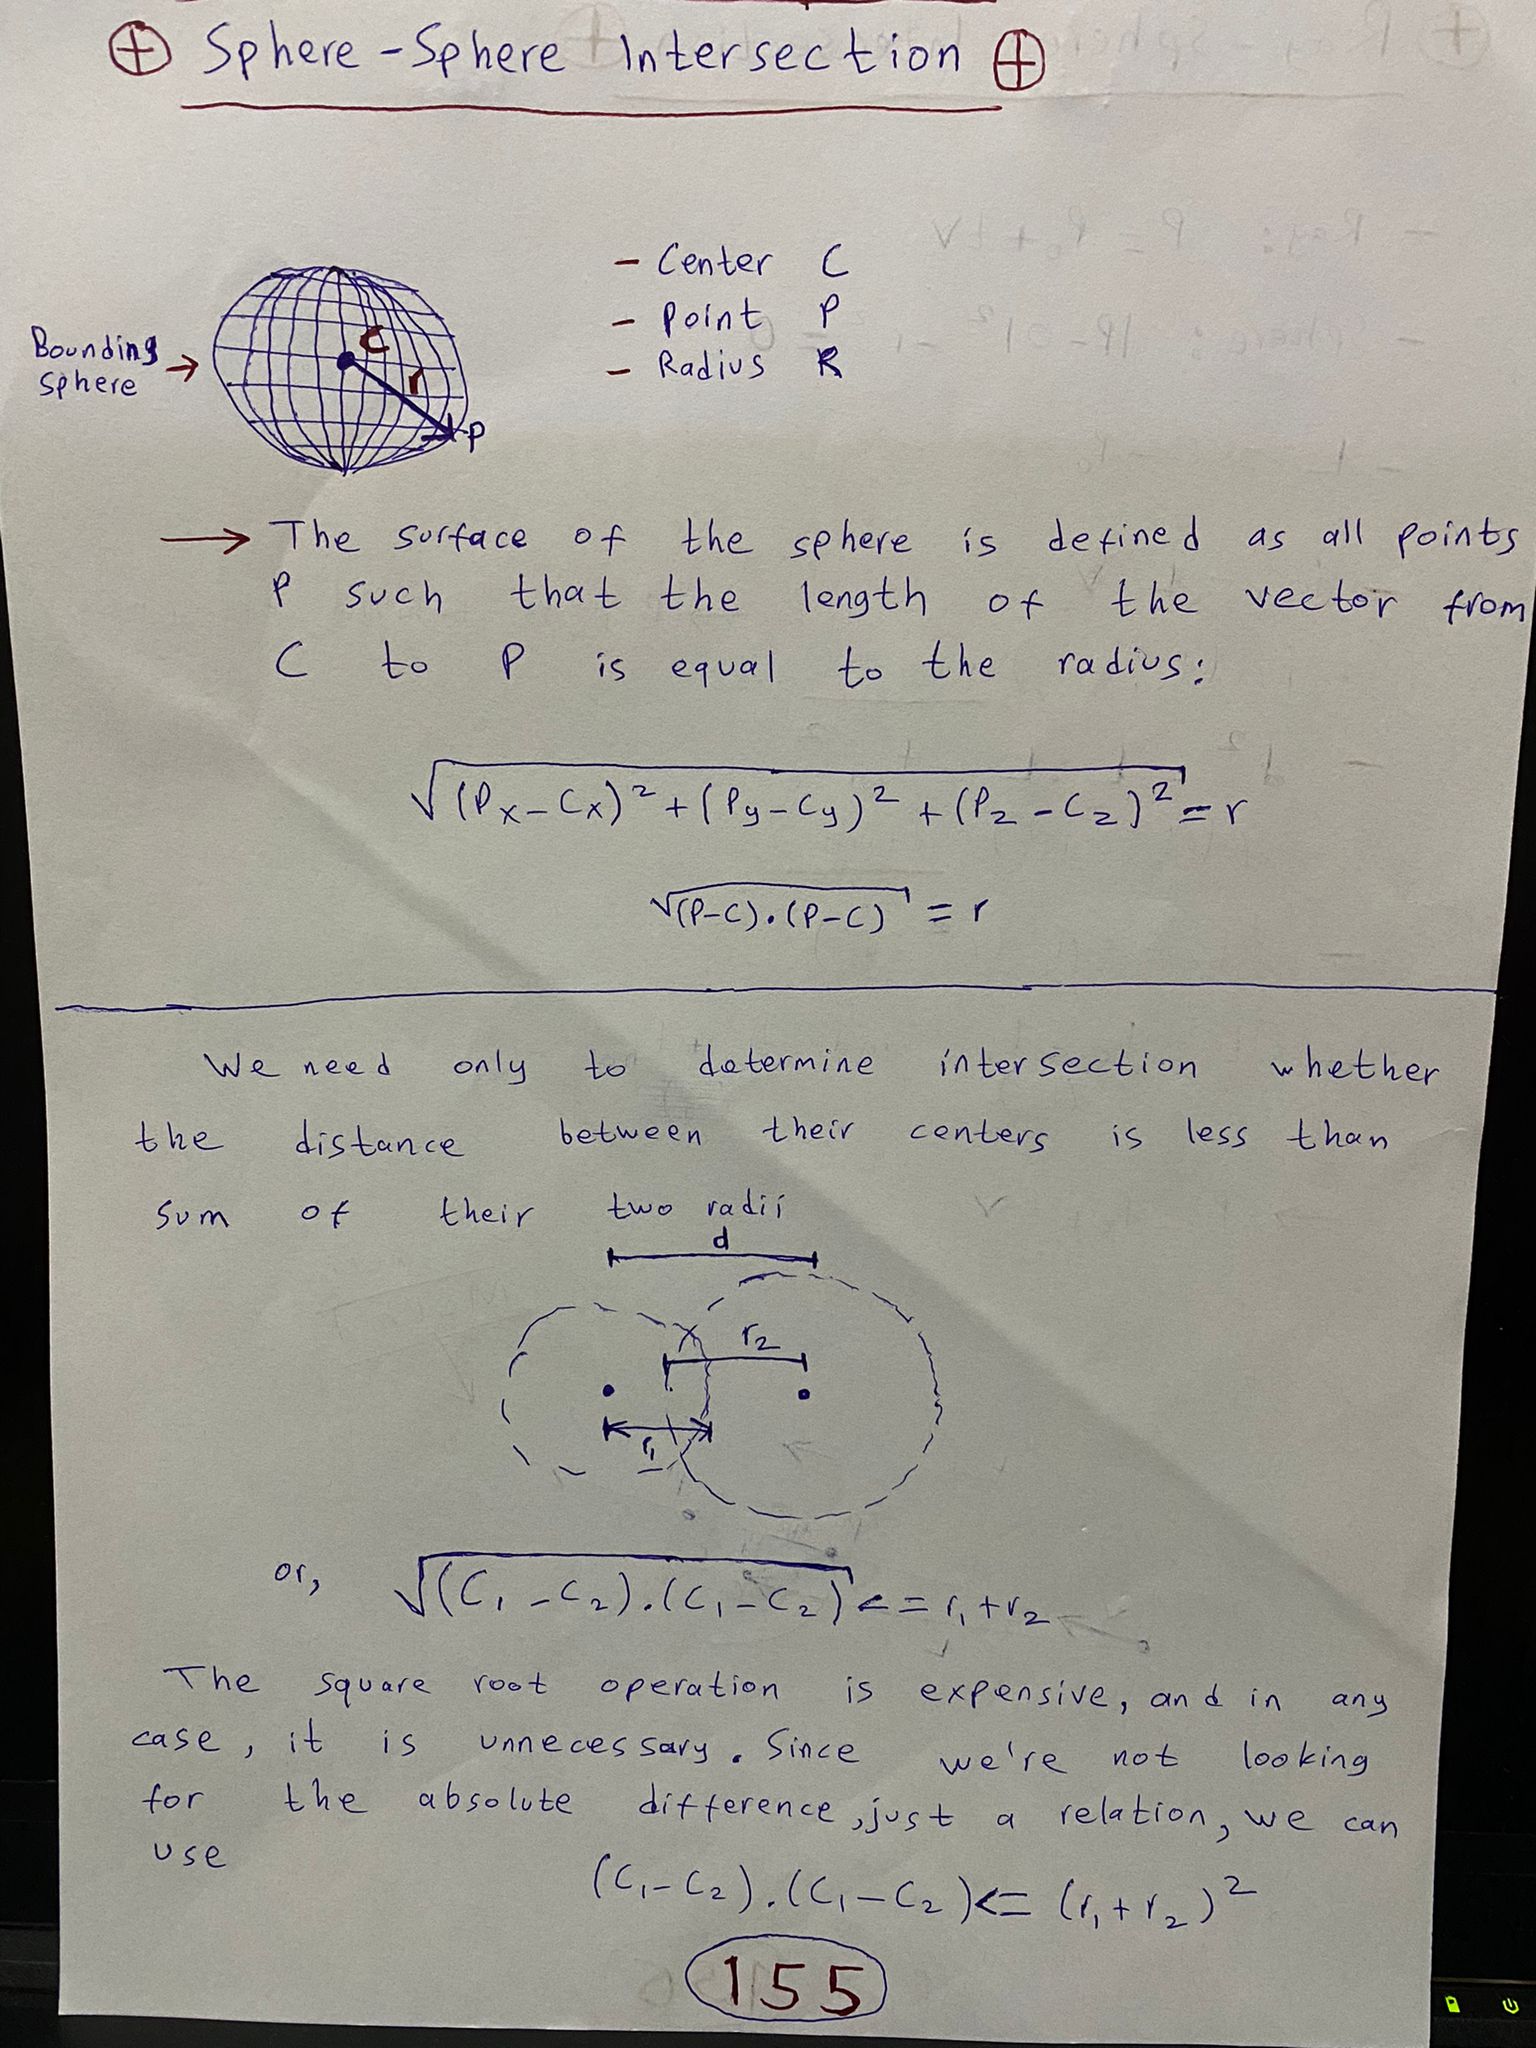 ⊕ Sphere-Sphere Intersection ⊕
- Center C
- Point P
- Radius R
Bounding
Sphere →
C
r
P
→ The surface of the sphere is defined as all points
P such that the length of the vector from
C to P is equal to the radius:
√((Px-Cx)²+(Py-Cy)²+(Pz-Cz)²) = r
√((P-C).(P-C)) = r
We need only to determine intersection whether
the distance between their centers is less than
sum of their two radii
d
r₂
r₁
or, √((C₁-C₂).(C₁-C₂)) <= r₁+r₂
The square root operation is expensive, and in any
case, it is unnecessary. Since we're not looking
for the absolute difference, just a relation, we can
use
(C₁-C₂).(C₁-C₂) <= (r₁+r₂)²
155